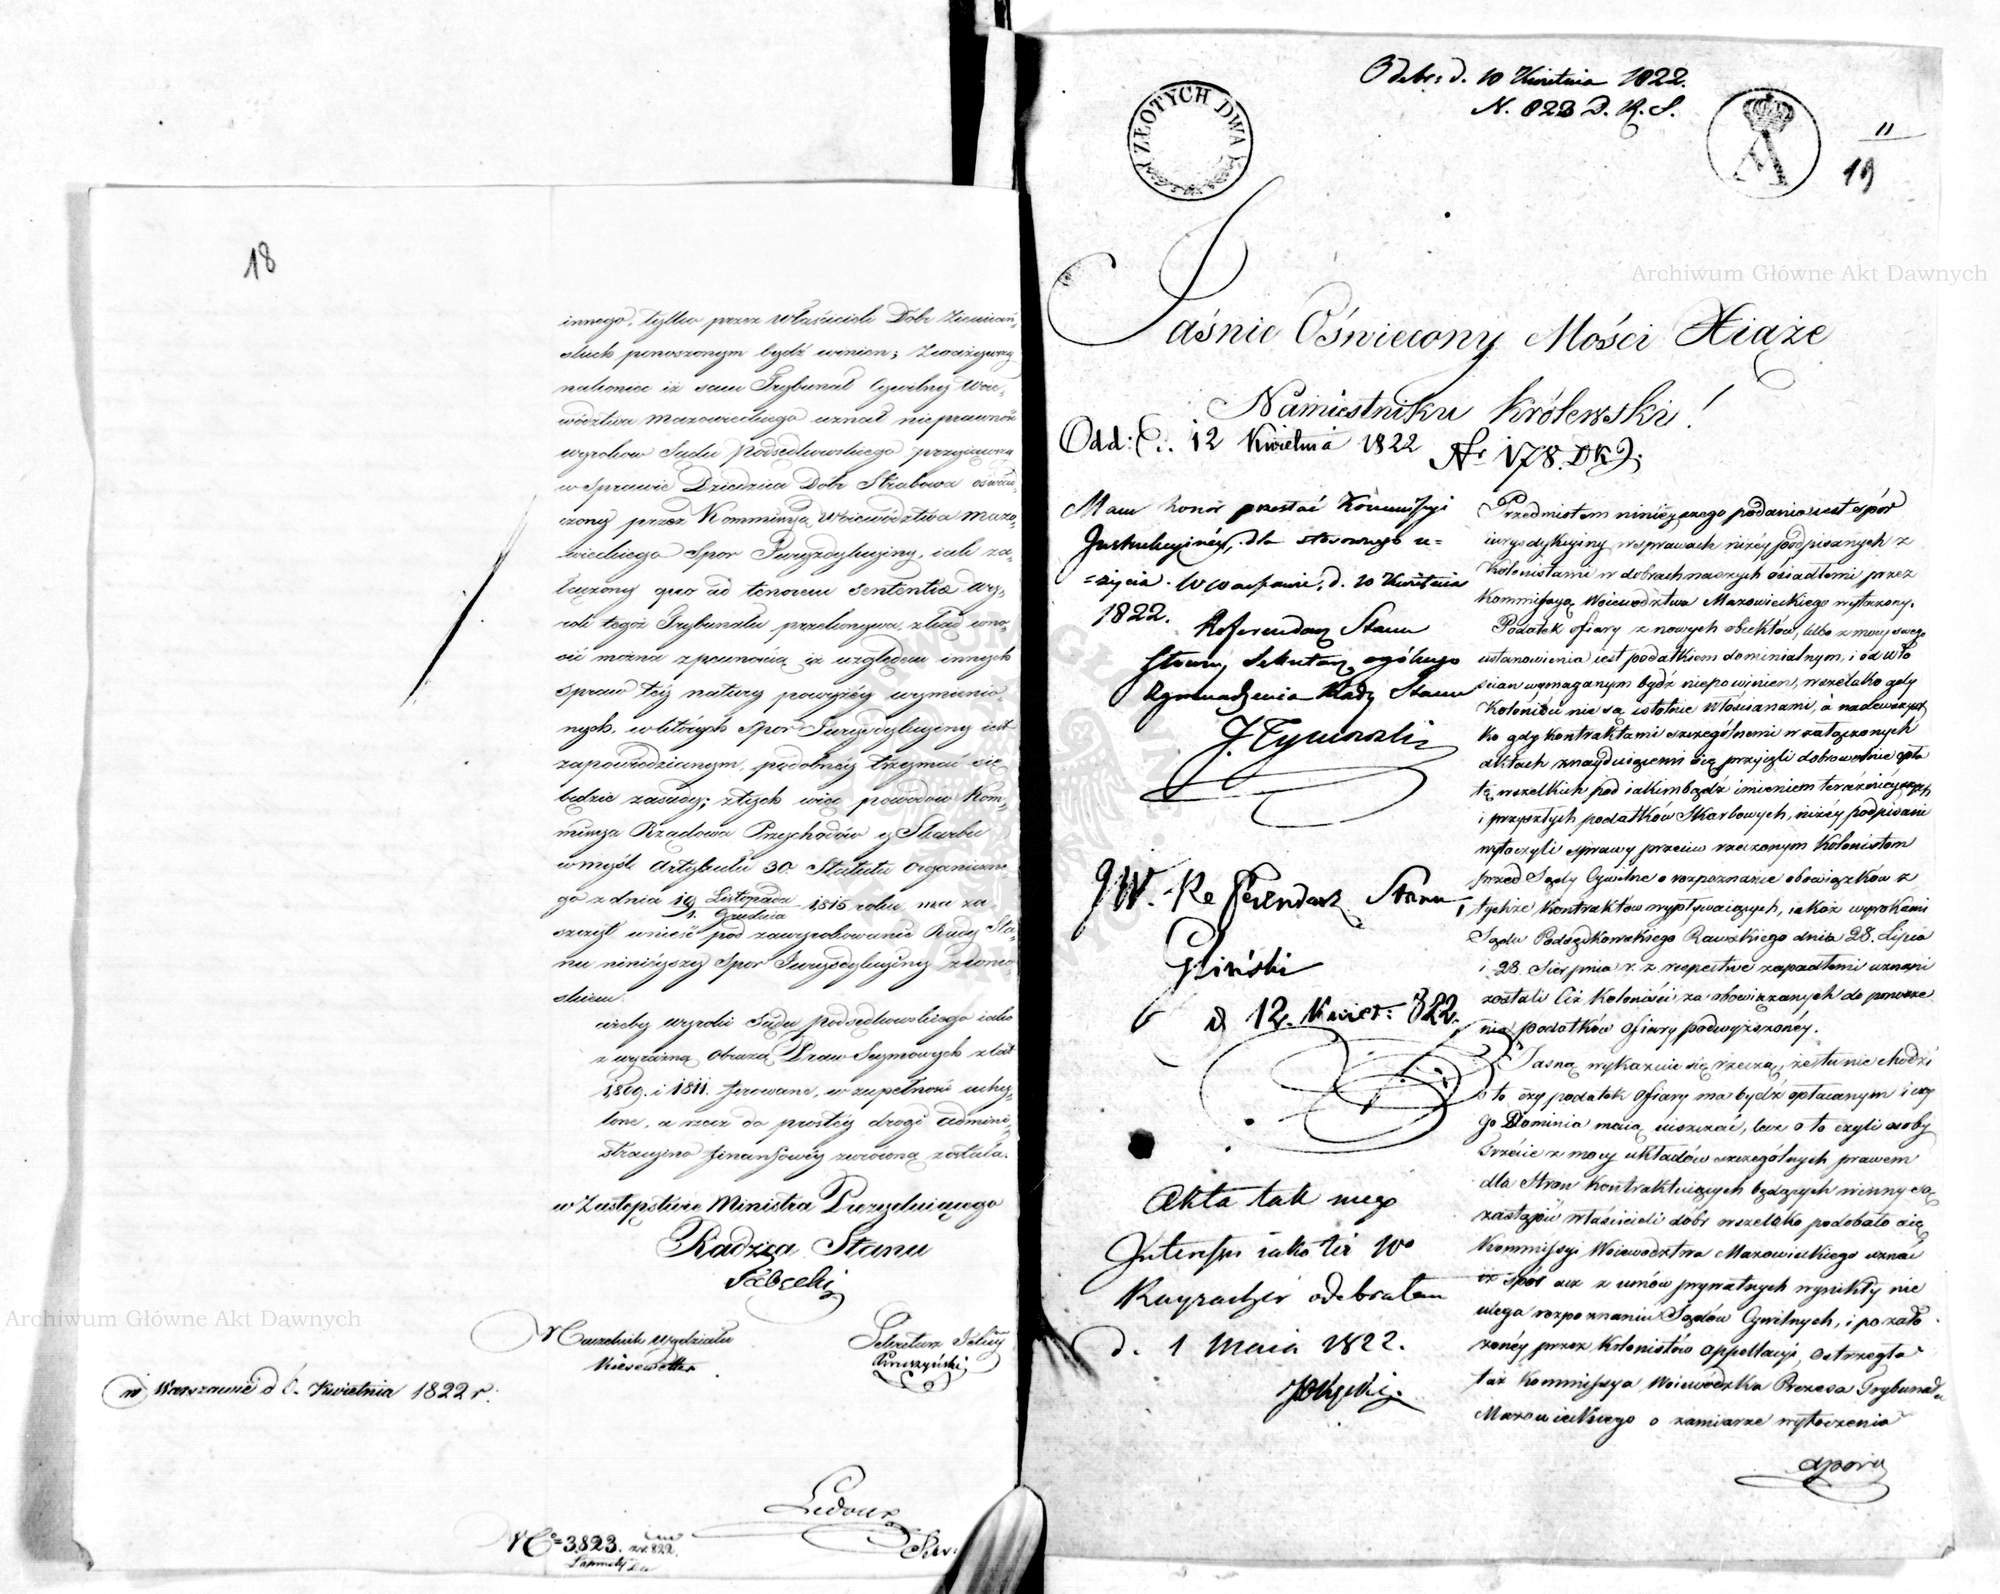 18
innego, tylko przez Właścicieli Dóbr Ziemiań-
skich ponoszonym bydź winien; Zważywszy
nakoniec iż sam Trybunał Cywilny Woie-
wództwa Mazowieckiego uznał nieprawność
wyroków Sądu Podsędkowskiego przyiąwszy
w Sprawie Dziedzica Dóbr Strabowa oświad-
czony przez Kommissyą Woiewództwa Mazo-
wieckiego Spor Juryzdykcyiny, iak za-
łączony quo ad tenorem sententia Wy-
rok tegoż Trybunału przekonywa, ztąd wno-
sić można z pewnością iż względem innych
spraw téy natury powyżéy wymienio-
nych, w których Spor Juryzdykcyiny iest
zapowiedzianym, podobnéy trzymać się
będzie zasady; z tych więc powodów Kom-
missya Rządowa Przychodów y Skarbu
w myśl Artykułu 30. Statutu Organiczne-
go z dnia 19 Listopada / 1. Grudnia 1815 roku ma za-
szczyt wnieść pod zawyrokowanie Rady Sta-
nu ninieyszy Spor Juryzdykcyiny z wnio-
skiem.
ażeby wyroki Sądu podsędkowskiego iako
z wyraźną obrazą Praw Seymowych z lat
1809. i 1811. ferowane, w zupełności uchy-
lone, a rzecz do prostéy drogi admini-
stracyino finansowéy zwróconą została.
w Zastępstwie Ministra Prezyduiącego
Radzca Stanu
Naczelnik Wydziału
Kiesewetter
Sekretarz Jlny
Kruszyński
w Warszawie d 6. Kwietnia 1822 r.
Ledoux
No 3823.
Odebr: d. 10 Kwietnia 1822.
N. 823 D. R. S.
ZŁOTYCH DWA
11
19
Jaśnie Oświecony Mości Xiąże
Namiestniku Królewski!
Odd: d. 12 Kwietnia 1822 Nr 178. DKJ.
Mam honor przesłać Kommissyi
Instrukcyinéy, dla stosownego u-
=życia. w Warszawie, d. 10 Kwietnia
1822.
Referendarz Stanu
Sekretarz ogólnego
Zgromadzenia Rady Stanu
J. Tymowski
JW. Referendarz Stanu
Gliński
d 12. Kwiet: 822.
Akta tak
iako też
odebrałem
d. 1 Maia 1822.
Przedmiotem ninieyszego podania iest spór
iurysdykcyiny w sprawach niżéy podpisanych z
Kolonistami w dobrach naszych osiadłemi przez
Kommissyą Woiewództwa Mazowieckiego wytoczony.
Podatek ofiary z nowych obiektów, lubo z mocy swego
ustanowienia iest podatkiem dominialnym, i od wło-
ścian wymaganym bydź niepowinien, wszelako gdy
Koloniści nie są istotnie Włościanami, à nadewszyst-
ko gdy kontraktami szczególnemi w załączonych
aktach znayduiącemi się przyięli dobrowolnie opła-
tę wszelkich pod iakimbądź imieniem teraźnieyszych
i przyszłych podatków Skarbowych, niżéy podpisani
wytoczyli sprawy przeciw rzeczonym Kolonistom
przed Sądy Cywilne o rozpoznanie obowiązków z
tychże Kontraktów wypływaiących, iakoż wyrokami
Sądu Podsędkowskiego Rawskiego dnia 28. Lipca
i 28. Sierpnia r. z. respective zapadłemi uznani
zostali ciż Koloniści za obowiązanych do ponosze-
nia podatków ofiary podwyższonéy.
Jasną wykazuie się rzeczą, że tu nie chodzi
o to, czy podatek ofiary ma bydź opłacanym i czy
go Dominia maią uiszczać, lecz o to czyli osoby
trzecie z mocy układów szczególnych prawem
dla Stron kontraktuiących będących winny są
zastąpić właścicieli dóbr wszelako podobało się
Kommissyi Woiewództwa Mazowieckiego uznać
iż spór ten z umów prywatnych wynikły nie
ulega rozpoznaniu Sądów Cywilnych, i po zało-
żonéy przez Kolonistów appellacyi, ostrzegła
też Kommissya Woiewódzka Prezesa Trybunału
Mazowieckiego o zamiarze wytoczenia
sporu
Archiwum Główne Akt Dawnych
Archiwum Główne Akt Dawnych